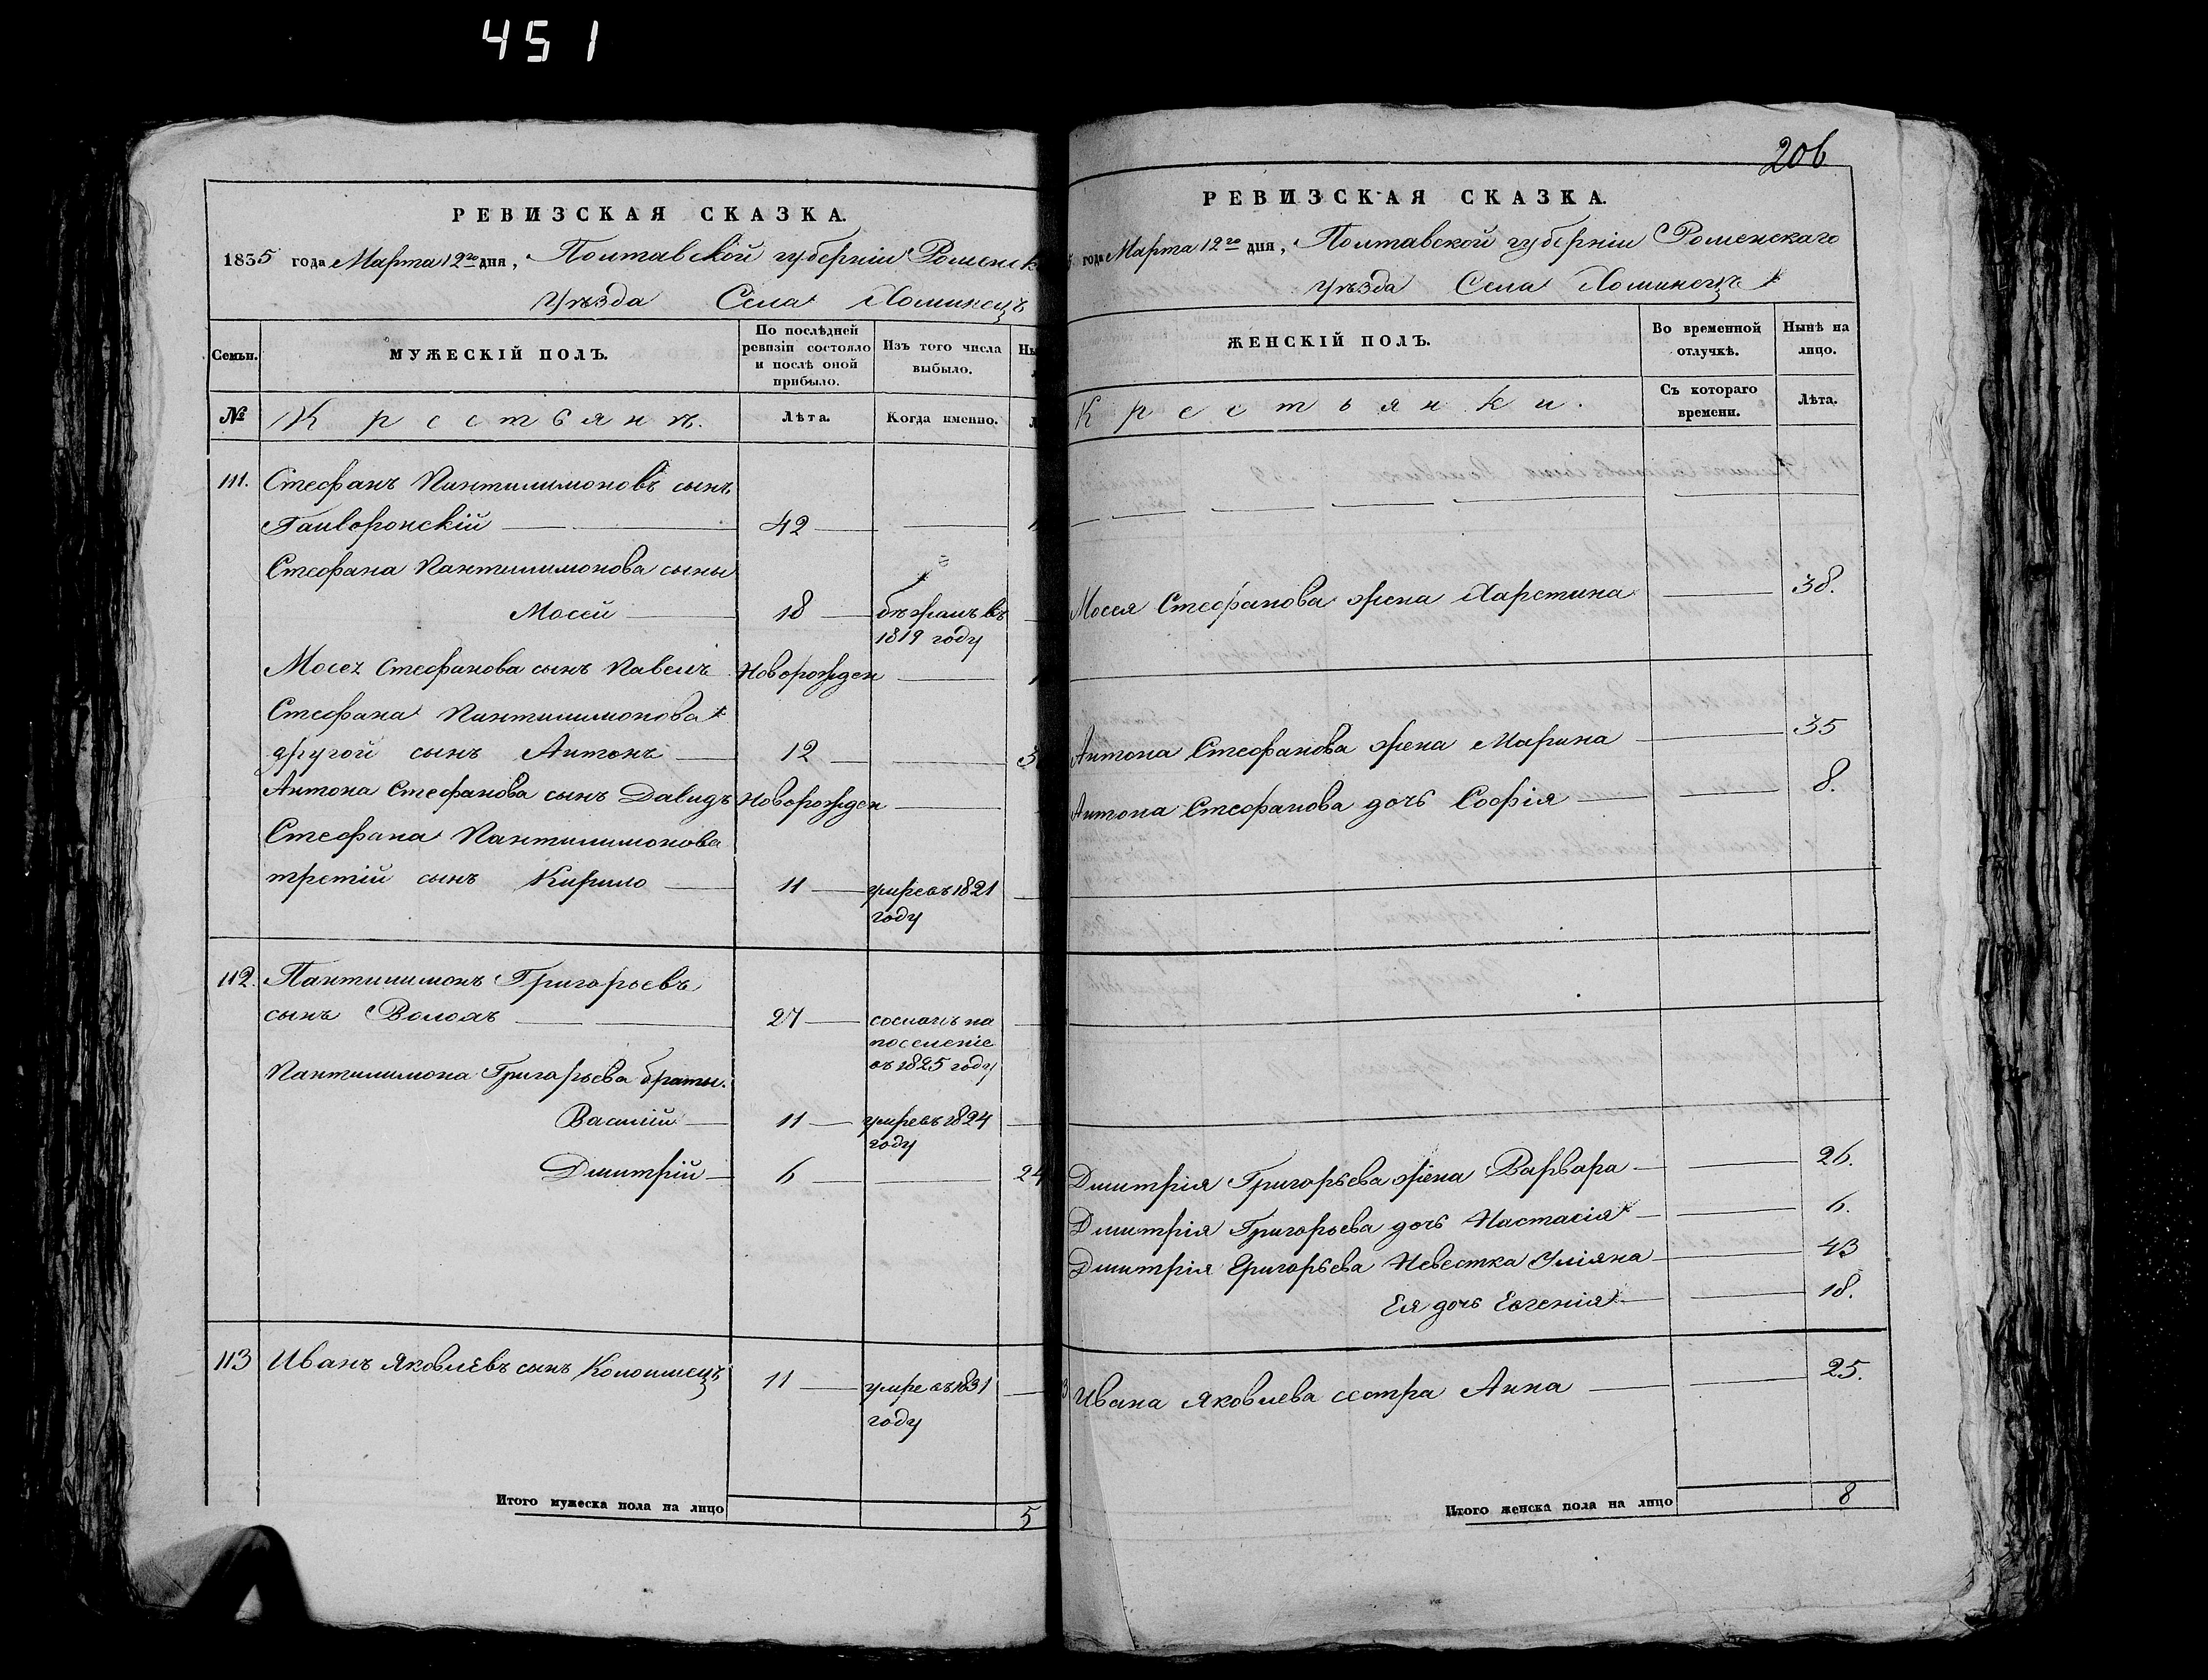 451
РЕВИЗСКАЯ СКАЗКА.
1835 года Марта 12го дня, Полтавской губерніи Роменск
уѣзда Села Хоминецъ
Семьи. МУЖЕСКІЙ ПОЛЪ. По послѣдней ревизіи состояло и послѣ оной прибыло. Изъ того числа выбыло. Ны
№ Крестьянъ. Лѣта. Когда именно.
111. Стефанъ Пантилимоновъ сынъ
Гаиворонскій 42
Стефана Пантилимонова сыны
Мосей 18 бѣжалъ въ
1819 году
Мосея Стефанова сынъ Павелъ Новорожден
Стефана Пантилимонова
другой сынъ Антонъ 12 3
Антона Стефанова сынъ Давидъ Новорожден
Стефана Пантилимонова
третій сынъ Кирило 11 умре въ 1821
году
112. Пантилимонъ Григорьевъ
сынъ Волохъ 27 сосланъ на
поселеніе
въ 1825 году
Пантилимона Григорьева браты.
Василій 11 умре въ 1824
году
Дмитрій 6 24
113 Иванъ Яковлевъ сынъ 11 умре въ 1831
году
Итого мужеска пола на лицо 5
206
РЕВИЗСКАЯ СКАЗКА.
5 года Марта 12го дня, Полтавской губерніи Роменскаго
уѣзда Села Хоминецъ
ЖЕНСКІЙ ПОЛЪ. Во временной отлучкѣ. Нынѣ на лицо.
Крестьянки. Съ котораго времени. Лѣта.
Мосея Стефанова жена Харстина 38.
Антона Стефанова жена Марина 35
Антона Стефанова дочь Софія 8.
Дмитрія Григорьева жена Варвара 26.
Дмитрія Григорьева дочь Настасія 6.
Дмитрія Григорьева Невестка Уліяна 43
Ея дочь Евгенія 18.
3 Ивана Яковлева сестра Анна 25.
Итого женска пола на лицо 8